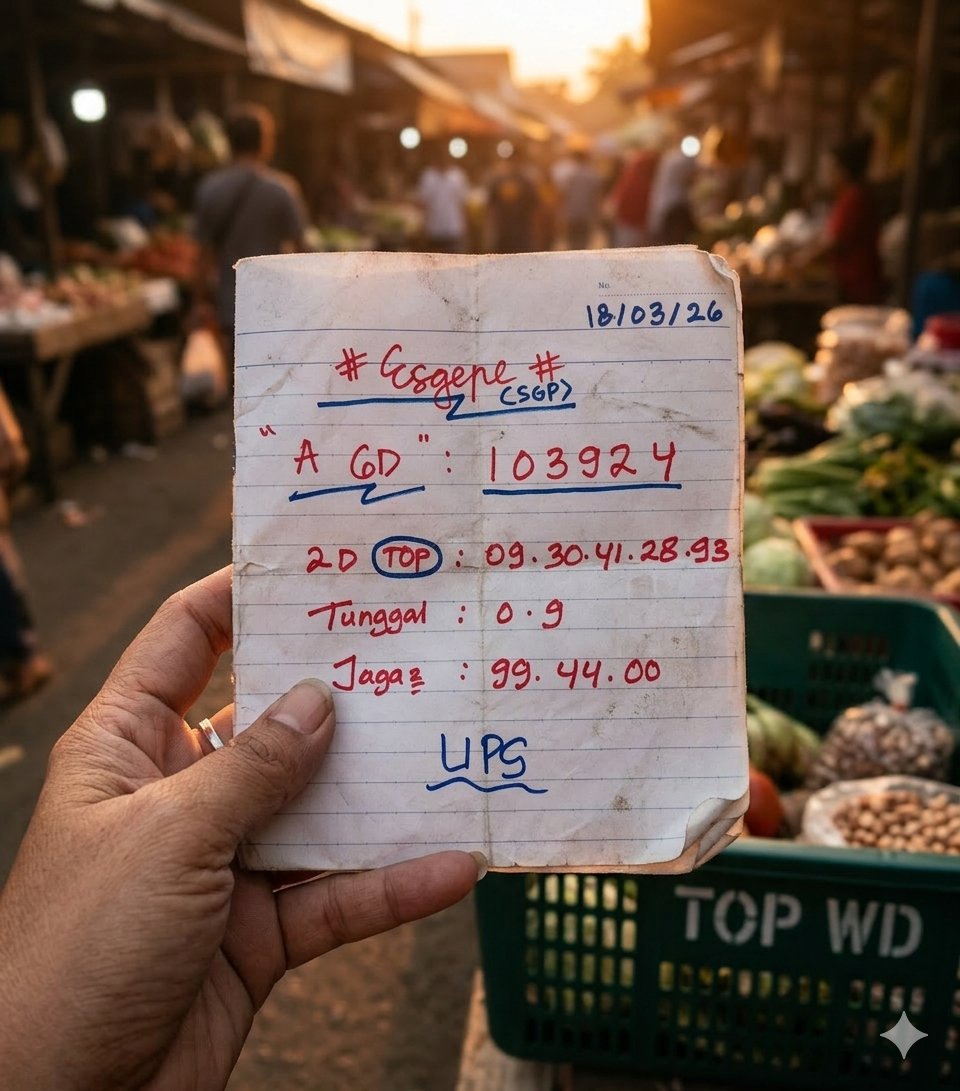 No
18/03/26
# Esgepe #
(SGP)
"A 6D" : 103924
2D TOP : 09.30.41.28.93
Tunggal : 0.9
Jaga2 : 99.44.00
UPS
TOP WD